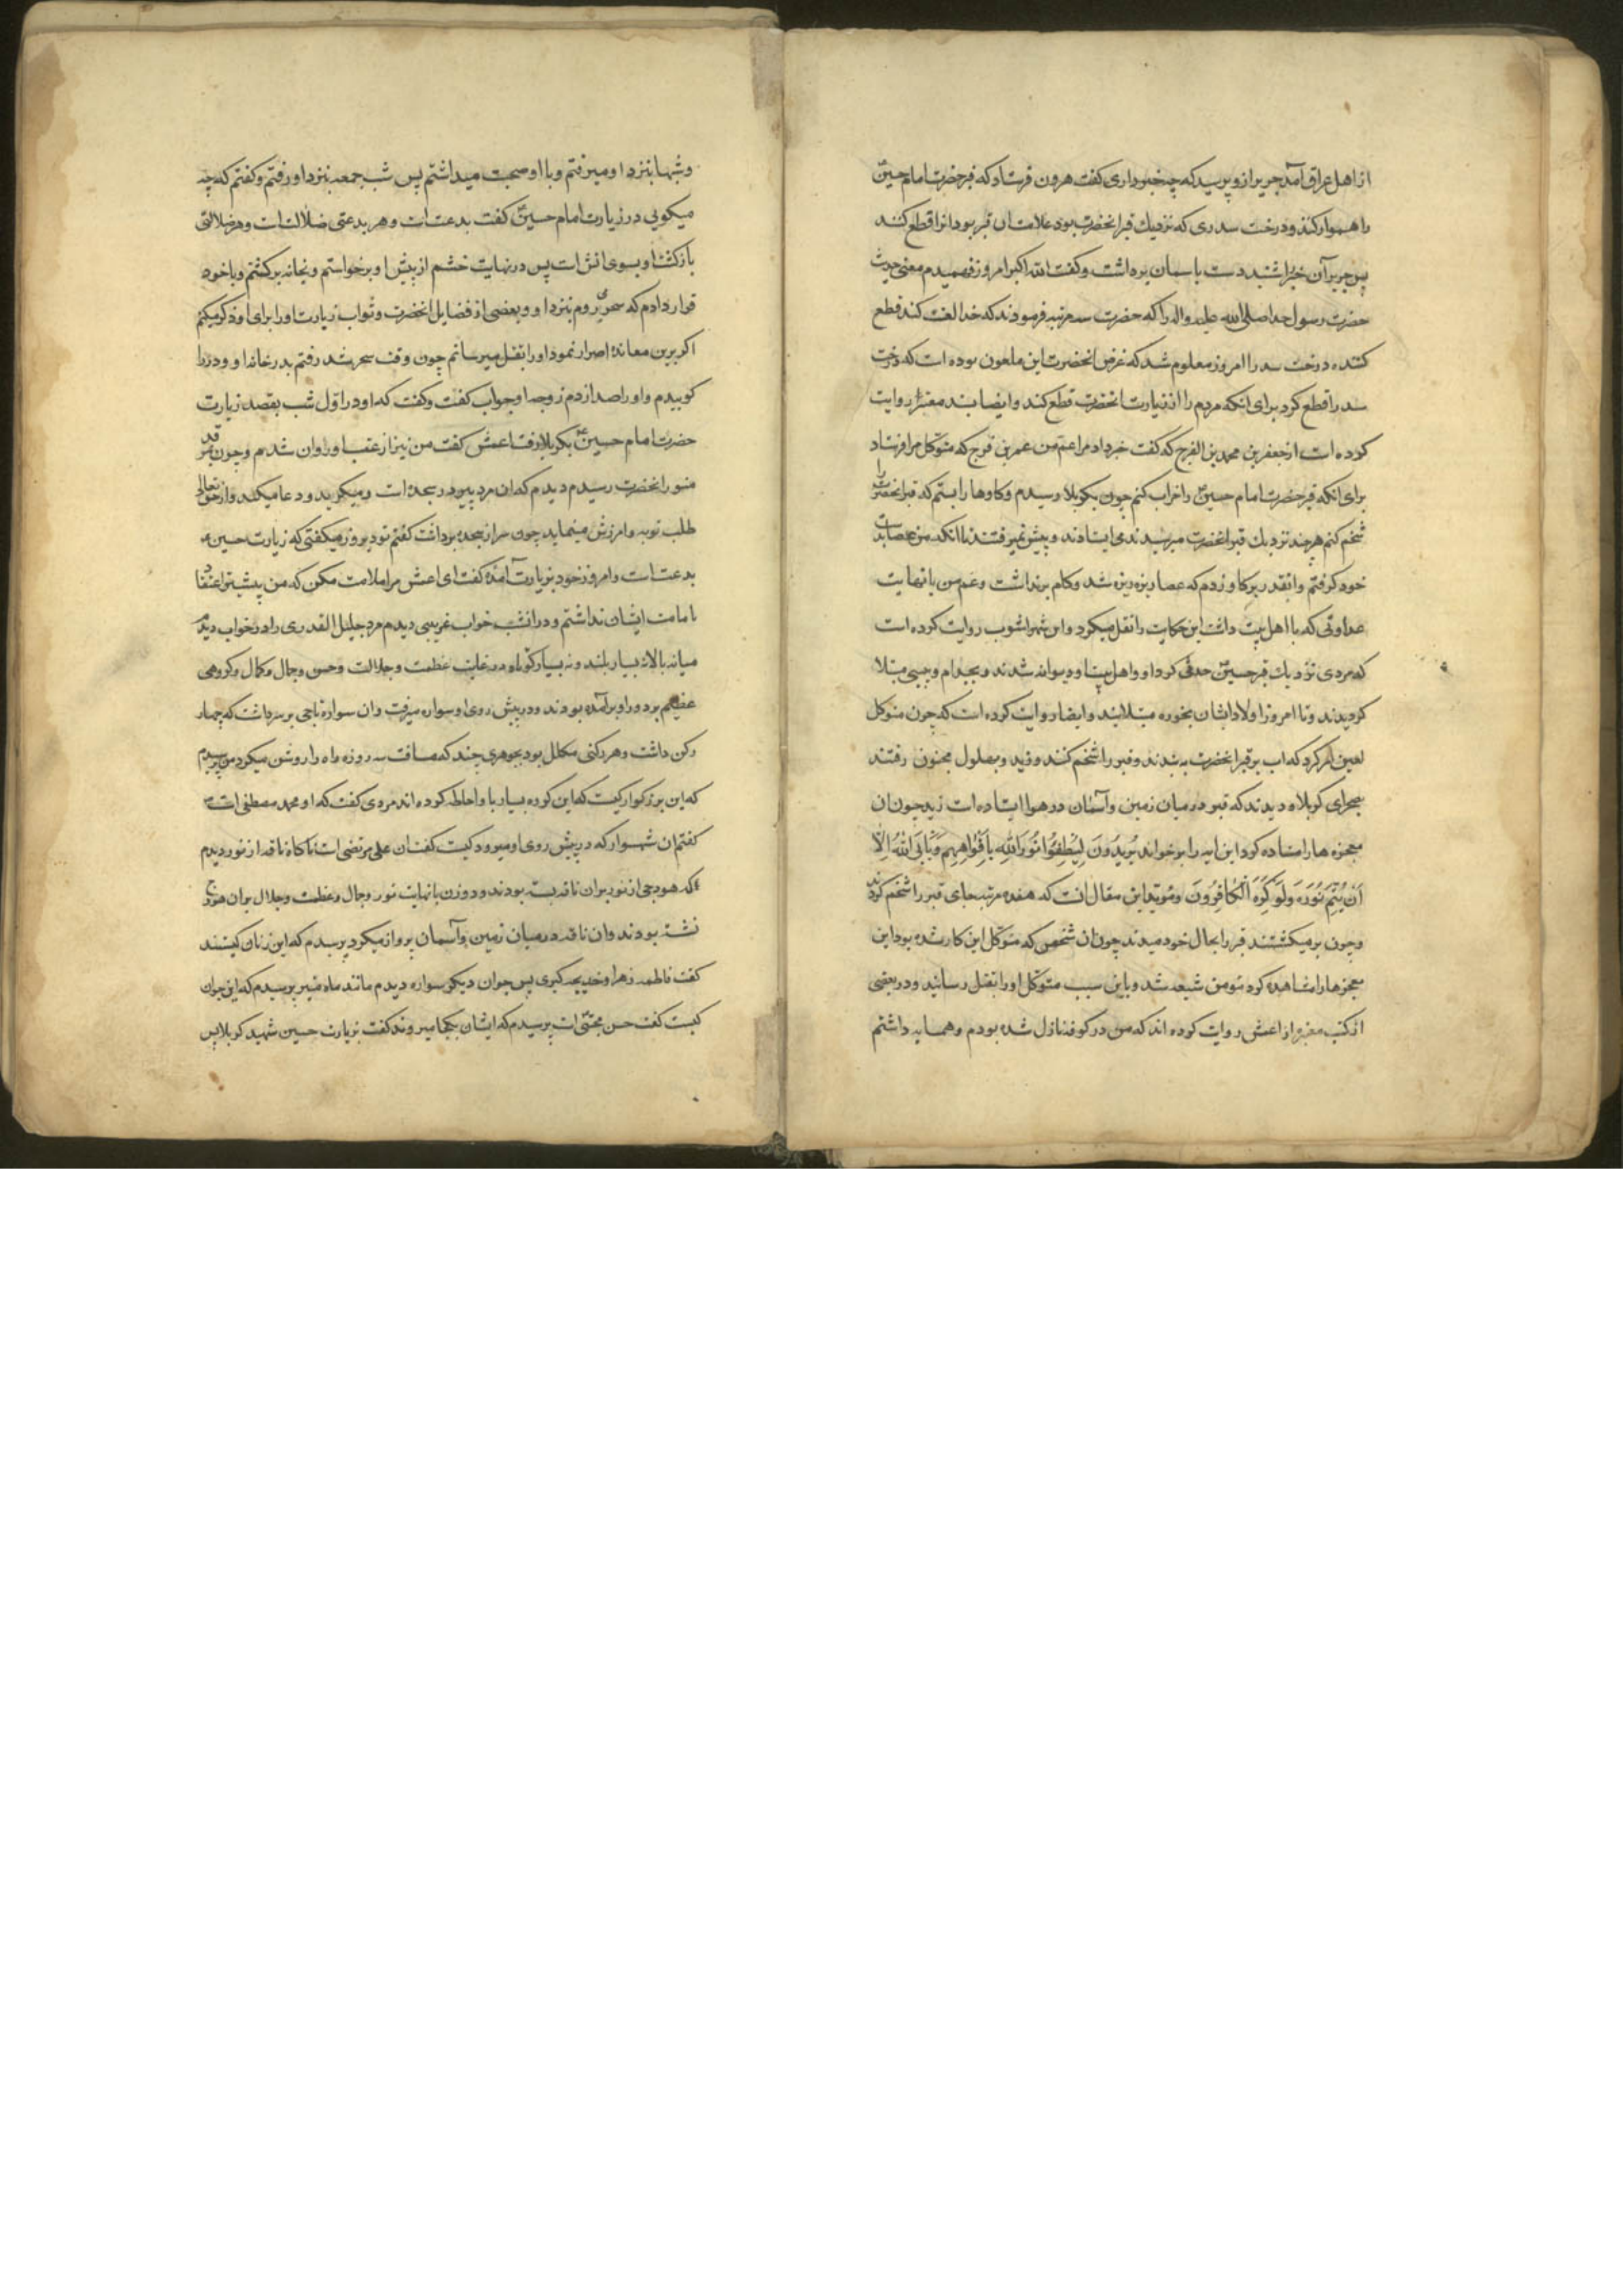 از اهل عراق آمد جریر ازو پرسید که چه خبر داری گفت هرون فرستاد که قبر حضرت امام حسین ع
را هموار کنند و درخت سدری که نزدیك قبر انحضرت بود علامت ان قبر بود انرا قطع کنند
پس جریر آن خبر را شنید دست باسمان برداشت و گفت الله اکبر امروز فهمیدم معنی حدیث
حضرت رسول خدا صلی الله علیه واله را که حضرت سه مرتبه فرمودند که خدا لعنت کند قطع
کننده درخت سدر را امروز معلوم شد که غرض انحضرت این ملعون بوده است که درخت
سدر را قطع کرد برای انکه مردم را از زیارت انحضرت قطع کند و ایضا بسند معتبر روایت
کرده است از جعفر بن محمد بن الفرج که گفت خبر داد مرا عم من عمر بن فرج که متوکل مرا فرستاد
برای انکه قبر حضرت امام حسین ع را خراب کنم چون بکربلا رسیدم و کاوها را بستم که قبر انحضرت را
شخم کنم هر چند نزدیك قبر انحضرت میرسیدند می ایستادند و پیش نمیرفتند تا انکه من عصا بدست
خود گرفتم و انقدر بر کاو زدم که عصا ریزه ریزه شد و کام برنداشت و عم من با نهایت
عداوتی که با اهل بیت داشت این حکایت را نقل میکرد و ابن شهراشوب روایت کرده است
که مردی نزدیك قبر حسین ع حدثی کرد او و اهل بیت او دیوانه شدند و بجذام و پیسی مبتلا
کردیدند و تا امروز اولاد ایشان بخوره مبتلایند و ایضا روایت کرده است که چون متوکل
لعین امر کرد که اب بر قبر انحضرت به بندند و قبر را شخم کنند و زید و بهلول مجنون رفتند
بصحرای کربلا و دیدند که قبر در میان زمین و آسمان در هوا ایستاده است زید چون ان
معجزه ها را مشاهده کرد این ایه را بر خواند یُرِیدُونَ لِیُطْفِئُوا نُورَ اللهِ بِأَفْوَاهِهِمْ وَیَأْبَی اللهُ إِلَّا
أَنْ یُتِمَّ نُورَهُ وَلَوْ کَرِهَ الْکَافِرُونَ و مؤید این مقال انست که هفده مرتبه جای قبر را شخم کردند
و چون برمیکشتند قبر را بحال خود میدیدند چون ان شخص که متوکل این کار شده بود این
معجزها را مشاهده کرد مؤمن شیعه شد و باین سبب متوکل او را بقتل رسانید و در بعضی
از کتب معتبره از اعمش روایت کرده اند که من در کوفه نازل شده بودم و همسایه داشتم
و شبها بنزد او میرفتم و با او صحبت میداشتم پس شب جمعه بنزد او رفتم و کفتم که چه
میکویی در زیارت امام حسین ع کفت بدعت است و هر بدعتی ضلالت است و هر ضلالتی
بازکشت او بسوی اتش است پس در نهایت خشم از پیش او برخواستم و بخانه برکشتم و با خود
قرار دادم که سحری بروم بنزد او و بعضی از فضایل انحضرت و ثواب زیارت او را برای او ذکر میکنم
اکر برین معانده اصرار نمود او را بقتل میرسانم چون وقت سحر شد رفتم بدر خانه او و در را
کوبیدم و او را صدا زدم زوجه او جواب کفت و کفت که او در اول شب بقصد زیارت
حضرت امام حسین ع بکربلا رفت اعمش کفت من نیز از عقب او روان شدم و چون بقبر
منور انحضرت رسیدم دیدم که ان مرد پیر در سجده است و میکرید و دعا میکند و از حق تعالی
طلب توبه و امرزش مینماید چون سر از سجده برداشت کفتم تو دیروز میکفتی که زیارت حسین
بدعت است و امروز خود بزیارت آمدهٔ کفت ای اعمش مرا ملامت مکن که من پیشتر اعتقاد
بامامت ایشان نداشتم و در انشب خواب غریبی دیدم مرد جلیل القدری را در خواب دیدم
میانه بالا نه بسیار بلند و نه بسیار کوتاه در غایت عظمت و جلالت و حسن و جمال و کمال و کروهی
عظیم بر دور او برآمده بودند و در پیش روی او سواره میرفت و ان سواره تاجی بر سر داشت که چهار
رکن داشت و هر رکنی مکلل بود بجوهری چند که مسافت سه روزه راه را روشن میکرد من پرسیدم
که این بزرکوار کیست که این کروه بسیار باو احاطه کرده اند مردی کفت که او محمد مصطفی است
کفتم ان شهسوار که در پیش روی او میرود کیست کفت ان علی مرتضی است ناکاه ناقه از نور دیدم
که هودجی از نور بر ان ناقه بسته بودند و دو زن با نهایت نور و جمال و عظمت و جلال بر ان هودج
نشسته بودند و ان ناقه در میان زمین و آسمان پرواز میکرد پرسیدم که این زنان کیستند
کفت فاطمه زهرا و خدیجه کبری پس جوان دیکر سواره دیدم مانند ماه منیر پرسیدم که این جوان
کیست کفت حسن مجتبی است پرسیدم که ایشان بکجا میروند کفت بزیارت حسین شهید کربلا پس